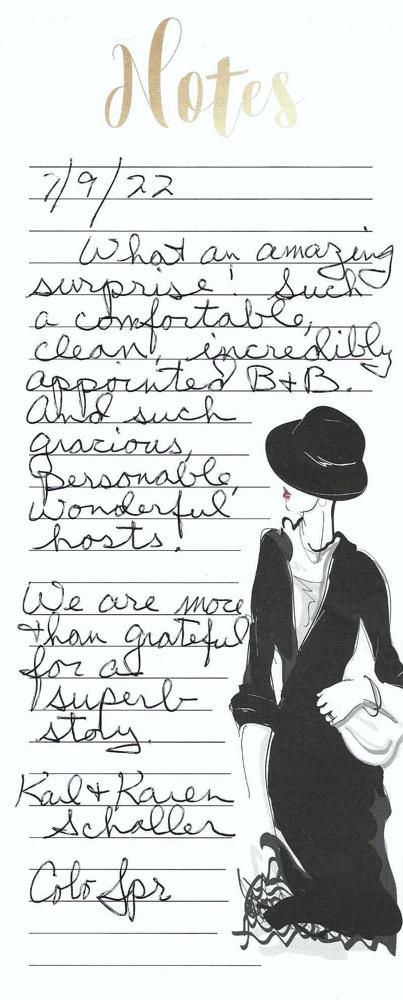 Notes
7/9/22
What an amazing
surprise! Such
a comfortable,
clean, incredibly
appointed B+B.
And such
gracious,
personable,
wonderful
hosts!
We are more
than grateful
for a
superb
stay.
Karl + Karen
Schaller
Colo Spr